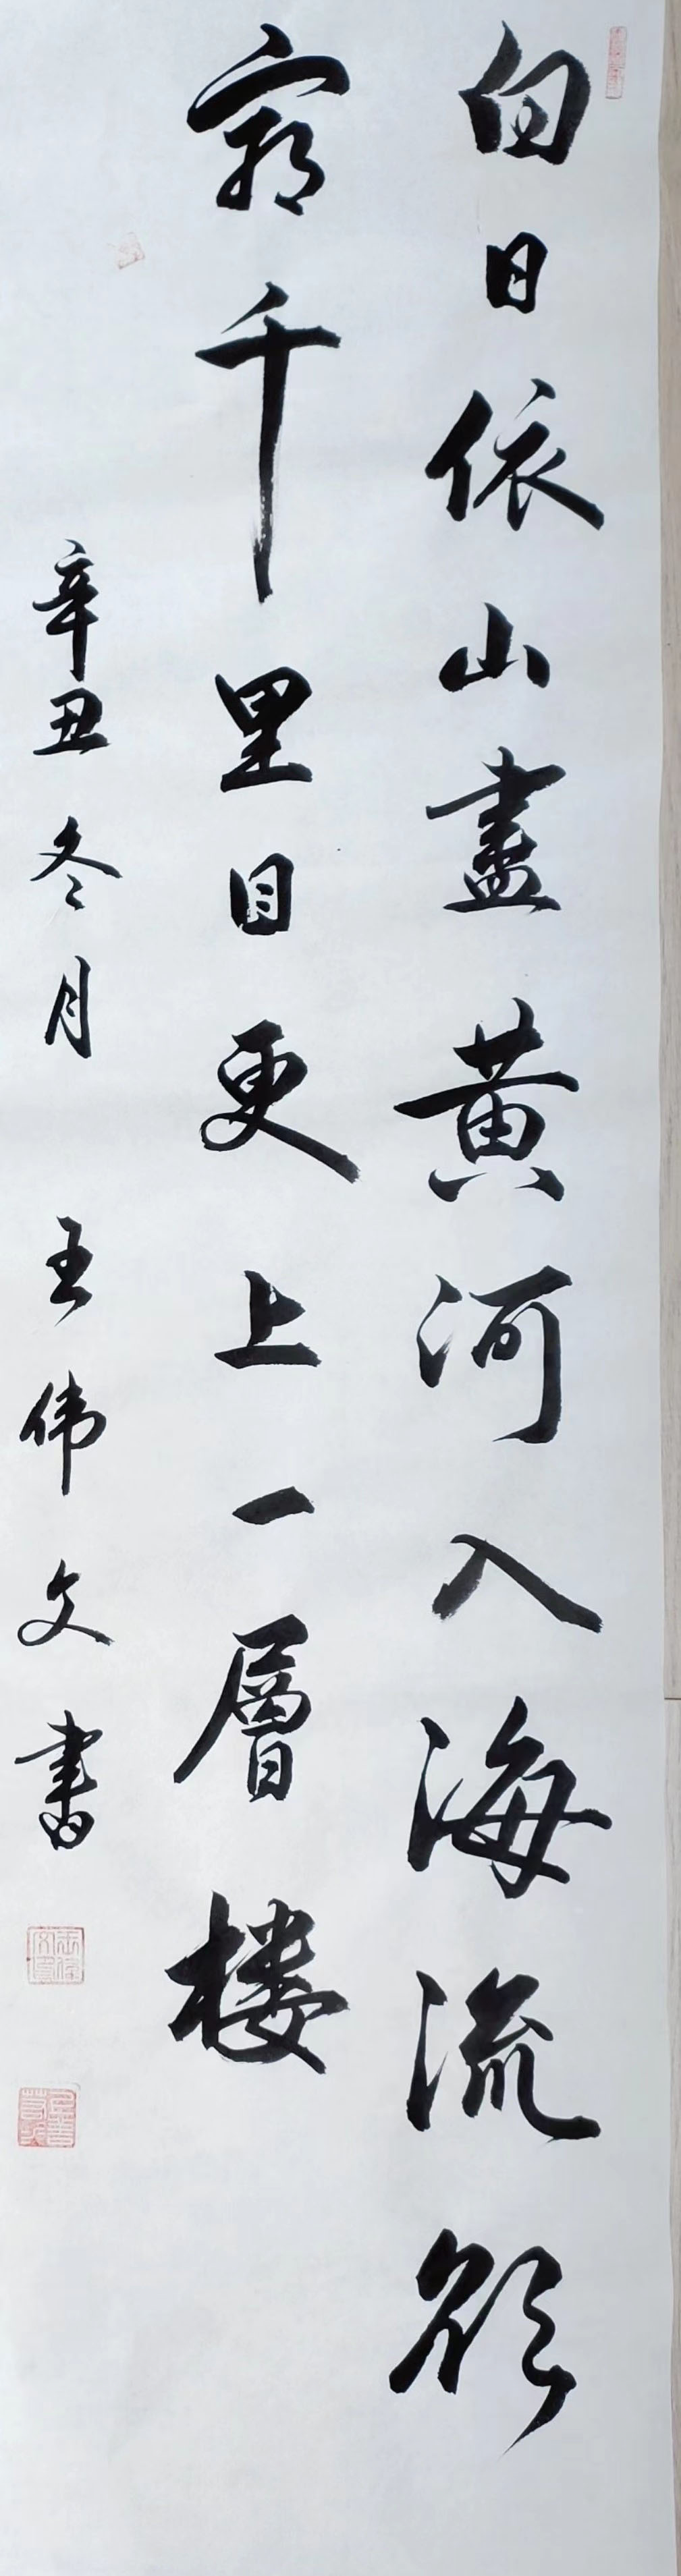 白日依山盡黄河入海流欲
窮千里目更上一層楼
辛丑冬月 王伟文書